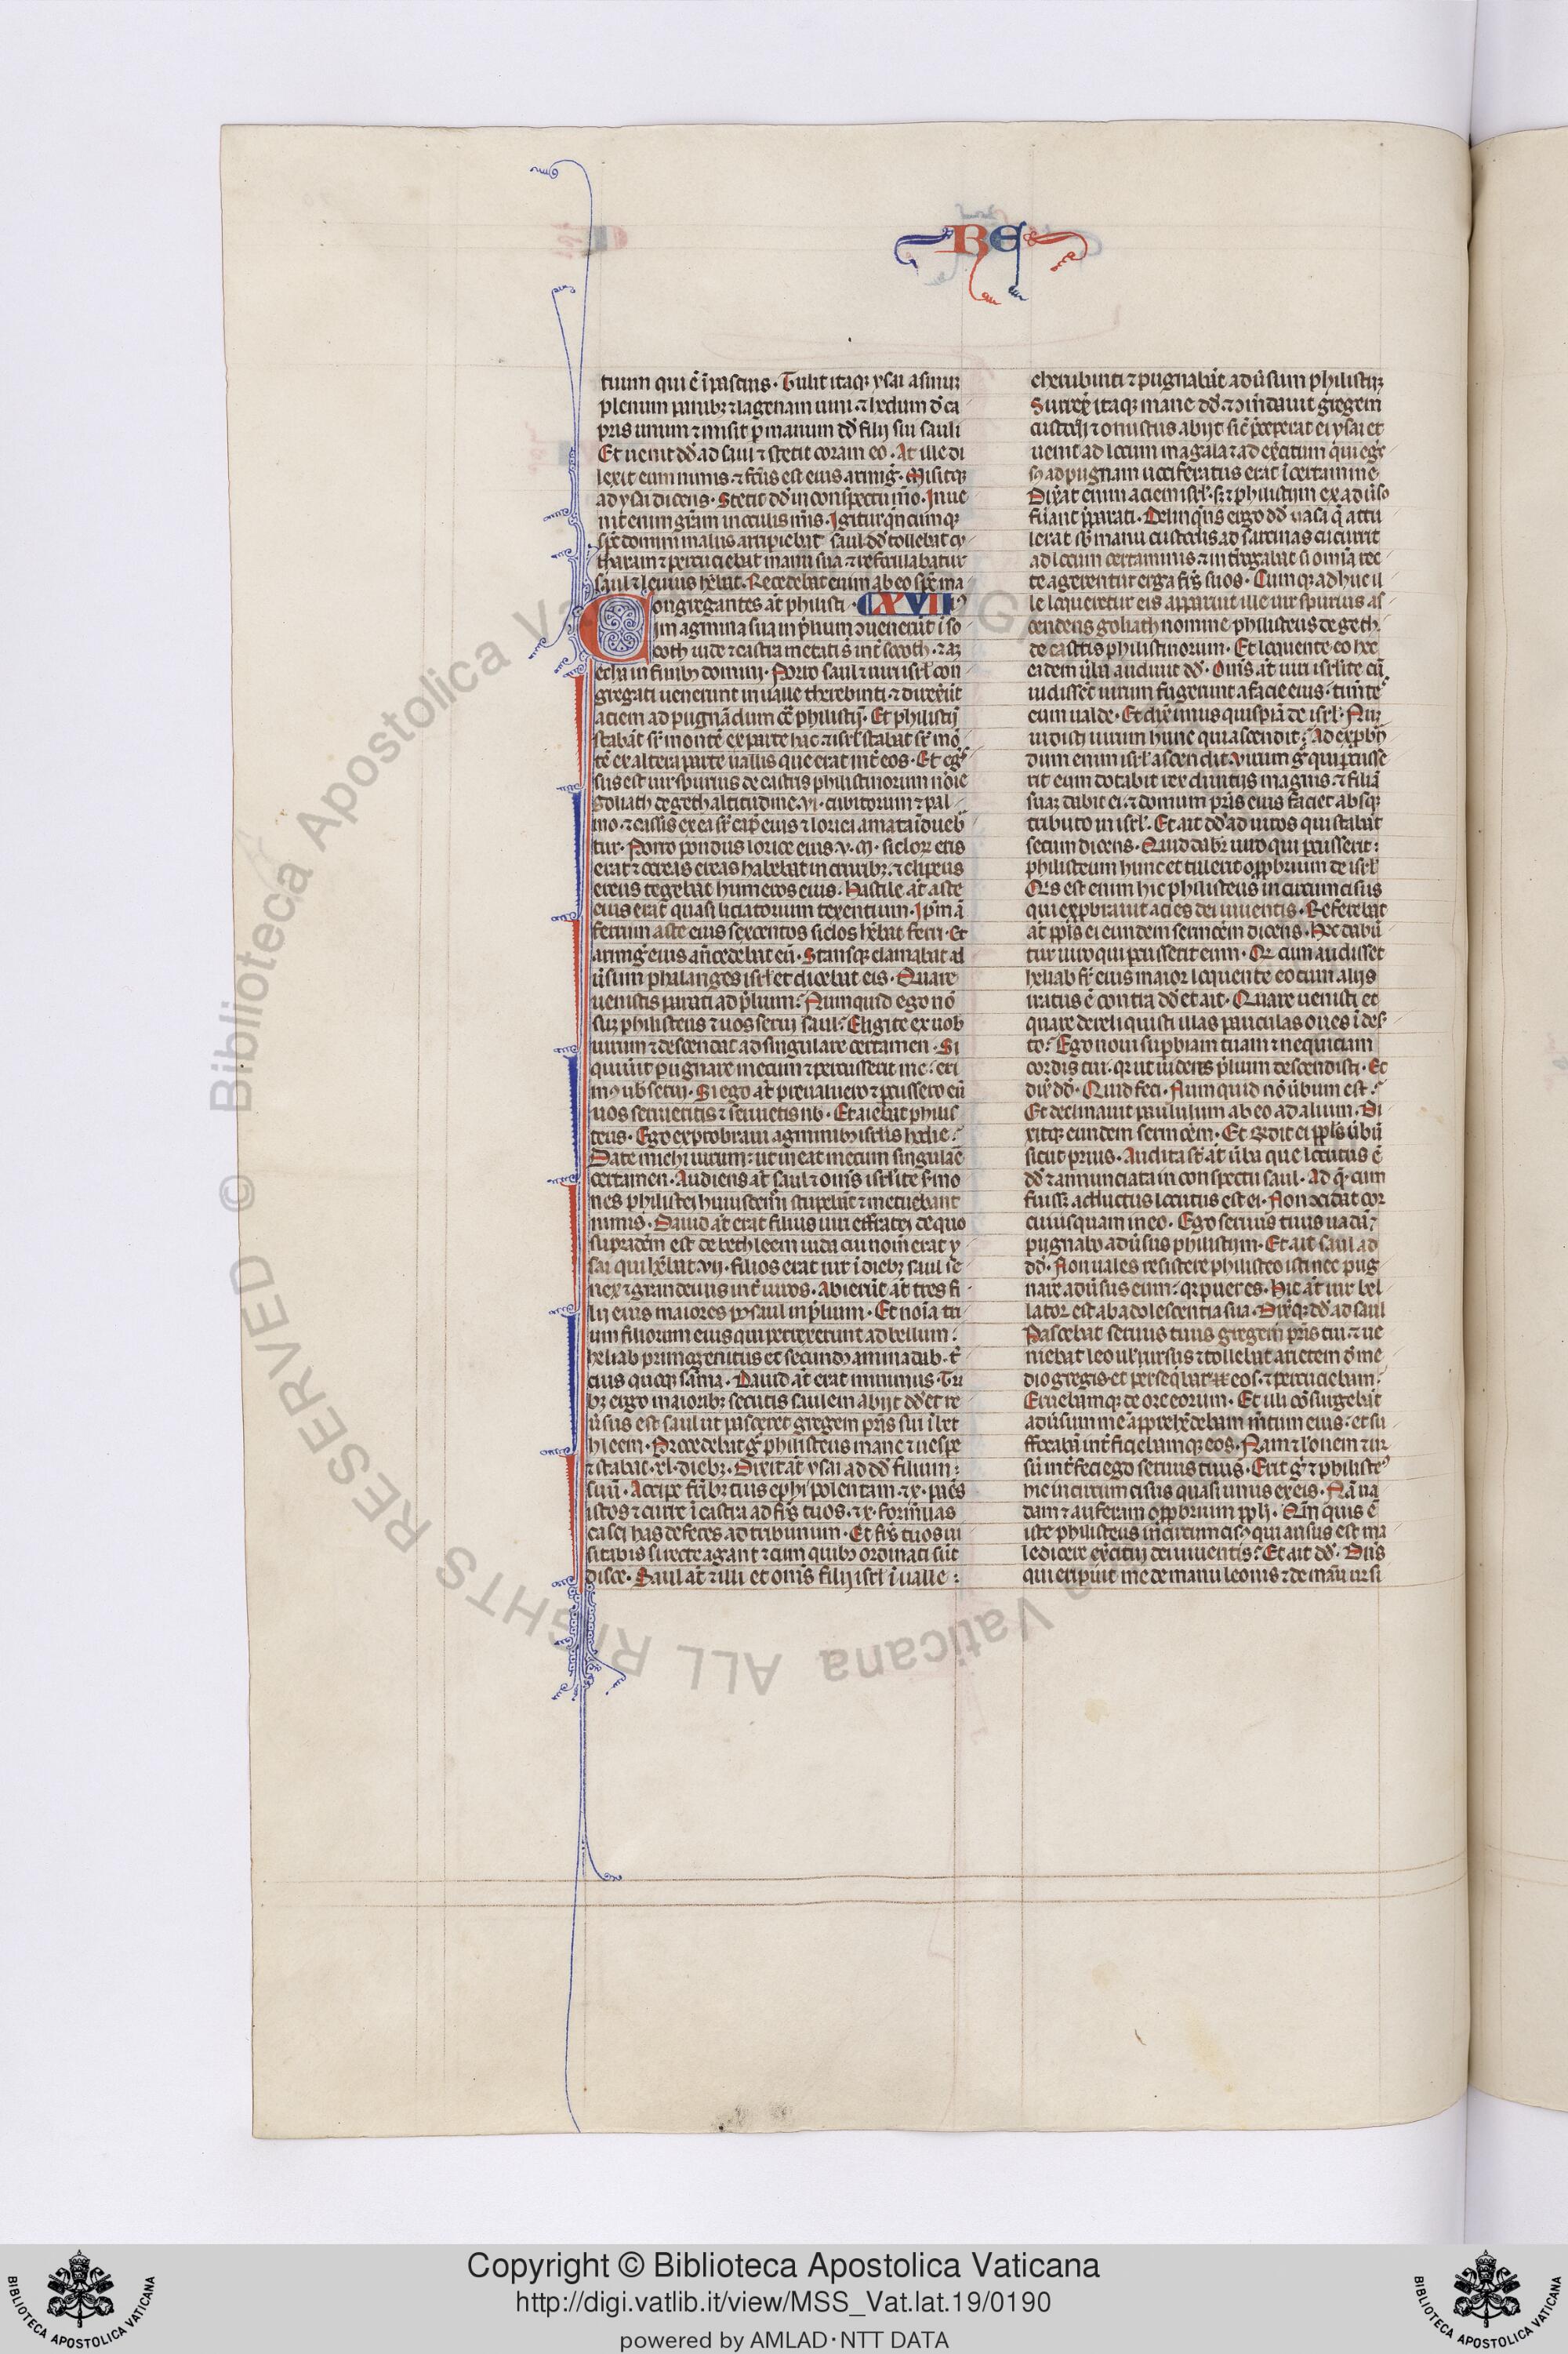 RE
tuum qui ē ī pascuis. Tulit itaqꝫ ysai asinuꝫ
plenum panibꝫ ⁊ lagenam uini. ⁊ hedum d̄ ca
pris unum ⁊ misit p̄ manum dd̄ filij sui sauli
Et uenit dd̄ ad saul ⁊ stetit coram eo. At ille di
lexit eum nimis. ⁊ fc̄us est eius armig̅. Misitqꝫ
ad ysai dicens. Stetit dd̄ in conspectu m̄o. Inue
nit enim gr̄am in oculis m̄is. Igitur qn̄cumqꝫ
sp̄c domini malus arripiebat saul. dd̄ tollebat cy
tharam ⁊ percuciebat manu sua. ⁊ refocillabatur
saul ⁊ leuius h̄ebat. Recedebat enim ab eo sp̄c ma
Congregantes at̄ philisti. XVII
im agmina sua in p̄lium ɔuenerūt ī so
coth iude ⁊ castra metati s̄ int̄ socoth. ⁊ aꝫ
echa in finibꝫ domim. Porro saul ⁊ uiri isrl̄ con
gregati uenerunt in ualle therebinti. ⁊ direxer̄t
aciem ad pugnādum cō philistij. Et philistij
stabāt sr̄ montē ex parte hac. ⁊ isrl̄ stabat sr̄ mō
tē ex altera parte uallis que erat int̄ eos. Et eg̅s
sus est uir spurius de castris philistinorum nōie
goliath de geth altitudine. vi. cubitorum ⁊ pal
mo. ⁊ cassis erea sr̄ cap̄ eius ⁊ lorica amata īdueb
tur. Porro pondus lorice eius. v. m̄. siclorꝫ eris
erat ⁊ ocreas ereas habebat in cruribꝫ. ⁊ clipeus
ereus tegebat humeros eius. Hastile at̄ aste
eius erat quasi liciatorium texentium. Ipm̄ ā
ferrum aste eius sexcentos siclos h̄ebat ferri. Et
armig̅ eius an̄cedebat eū. Stansqꝫ clamabat ad
ūsum phalanges isrl̄ et dicebat eis. Quare
uenistis parati ad p̄lium. Numquid ego nō
suꝫ philisteus ⁊ uos serui saul. Eligite ex uob
uirum ⁊ descendat ad singulare certamen. Si
quiu̅it pugnare mecum ⁊ percusserit me. eri
mꝰ ub̄ serui. Si ego at̄ preualuero ⁊ p̄cussero eū
uos seruientis ⁊ seruietis nb̄. Et aiebat philis
teus. Ego exprobraui agminibꝫ isrl̄is hodie.
Date michi uirum: ut ineat mecum singulaē
certamen. Audiens at̄ saul ⁊ om̄s isrl̄ite sr̄mo
nes philistei huiuscem̄i stupebāt ⁊ metuebant
nimis. Dauid at̄ erat filius uiri effratei de quo
supradc̄m est de bethleem iuda cui nom̄ erat y
sai qui h̄ebat. vij. filios erat uir ī diebꝫ saul se
nex ⁊ grandeuus int̄ uiros. Abierūt at̄ tres fi
lij eius maiores pꝰ saul in p̄lium. Et noīa tri
um filiorum eius qui perrexerunt ad bellum.
heliab primogenitus et secundꝰ aminadab. t̄
cius quoqꝫ sāma. Dauid at̄ erat minimus. Tri
bꝫ ergo maioribꝫ secutis saulem abijt dd̄ et re
ūsus est saul ut pasceret gregem pr̄is sui ī bet
hleem. Procedebat g̅ philisteus mane ⁊ uespe
⁊ stabat. xl. diebꝫ. Dixit at̄ ysai ad dd̄ filium:
suū. Accipe fr̄ibꝫ tuis ephi polentam. ⁊ x. panēs
istos ⁊ curre ī castra ad fr̄s tuos. ⁊ x. form̄ulas
casei has deferes ad tribunum. Et fr̄s tuos ui
sitabis si recte agant ⁊ cum quibꝫ ordinati sūt
disce. Saul at̄ ⁊ illi et om̄is filij isrl̄ ī ualle:
therubinti ⁊ pugnabāt adūsum philistijꝫ
Surrex̄ itaqꝫ mane dd̄. ⁊ ɔm̄dauit gregem
custodi ⁊ onustus abijt sic̄ p̄ceperat ei ysai et
uenit ad locum magala ⁊ ad ex̄citum qui eg̅s
sꝰ ad pugnam uociferatus erat ī certamine.
Dix̄at enim aciem isrl̄. sꝫ ⁊ philistijm ex adūso
fu̅ant p̄parati. Delinq̄ns ergo dd̄ uasa q̄ attu
lerat sb̄ manu custodis ad sarcinas cucurrit
ad locum certaminis ⁊ int̄rogabat si omīa rec
te agerentur erga fr̄s suos. Cumqꝫ adhuc il
le loqueretur eis apparuit ille uir spurius as
cendens goliath nomine philisteus de geth.
de castris philistinorum. Et loquente eo hec
eadem ūba audiuit dd̄. Om̄s at̄ uiri isrl̄ite cū
uidissēt uirum fugerunt a facie eius. tim̄tē
eum ualde. Et dix̄ unus quispiā de isrl̄. Nuꝫ
uidisti uirum hunc qui ascendit. Ad exp̄bꝫn
dum enim isrl̄ ascendit. Virum g̅ qui p̄cusse
rit eum ditabit rex diuitijs magnis. ⁊ filiā
suaꝫ dabit ei. ⁊ domum pr̄is eius faciet absqꝫ
tributo in isrl̄. Et ait dd̄ ad uiros qui stabāt
secum dicens. Quid dabꝫ uiro qui p̄cusserit:
philisteum hunc et tulerit opp̄brium de isrl̄
Qis est enim hic philisteus incircumcisus
qui exp̄brauit acies dei uiuentis. Referebāt
at̄ pp̄ls ei eundem sermōem dicens. Hec dabū
tur uiro qui p̄cusserit eum. Qꝫ cum audisset
heliab fr̄ eius maior loquente eo cum alijs
iratus ē contra dd̄ et ait. Quare uenisti et
quare dereliquisti illas pauculas oues ī des
to. Ego noui sup̄biam tuam ⁊ nequiciam
cordis tui. qꝫ ut uideres p̄lium descendisti. Et
dix̄ dd̄. Quid feci. Numquid nō ūbum est.
Et declinauit paululum ab eo ad alium. Di
xitqꝫ eundem sermōem. Et r̄ndit ei pp̄ls ūbū
sicut prius. Audita st̄ at̄ ūba que locutus ē
dd̄ ⁊ annunciata in conspectu saul. Ad q̄. cum
fuissꝫ adductus locutus est ei. Non ɔcidat cor
cuiusquam in eo. Ego seruus tuus uadā ⁊
pugnabo adūsus philistijm. Et ait saul ad
dd̄. Non uales resistere philisteo isti nec pug
nare adūsus eum: qꝫ puer es. Hic at̄ uir bel
lator est ab adolescentia sua. Dix̄qꝫ dd̄ ad saul
Pascebat seruus tuus gregem pr̄is tui. ⁊ ue
niebat leo ul̄ ursus ⁊ tollebat arietem d̄ me
dio gregis. et perseq̄bar eos. ⁊ percuciebam.
Eruebamqꝫ de ore eorum. Et illi cōsurgebāt
adūsum me ⁊ app̄rehēdebam m̄tum eius. et su
ffocabā int̄ficiebamqꝫ eos. Nam ⁊ leonem ⁊ ur
sū int̄feci ego seruus tuus. Erit g̅ ⁊ philisteꝰ
hic incircumcisus quasi unus ex eis. Nā ua
dam ⁊ auferam opp̄brium pp̄li. Qm̄ quis ē
iste philisteus incircumcisꝰ qui ausus est ma
ledicere ex̄citij dei uiuentis. Et ait dd̄. Dn̄s
qui eripuit me de manu leonis ⁊ de manū ursi
© Biblioteca Apostolica Vaticana ALL RIGHTS RESERVED
Copyright © Biblioteca Apostolica Vaticana
http://digi.vatlib.it/view/MSS_Vat.lat.19/0190
powered by AMLAD·NTT DATA
BIBLIOTECA APOSTOLICA VATICANA
BIBLIOTECA APOSTOLICA VATICANA